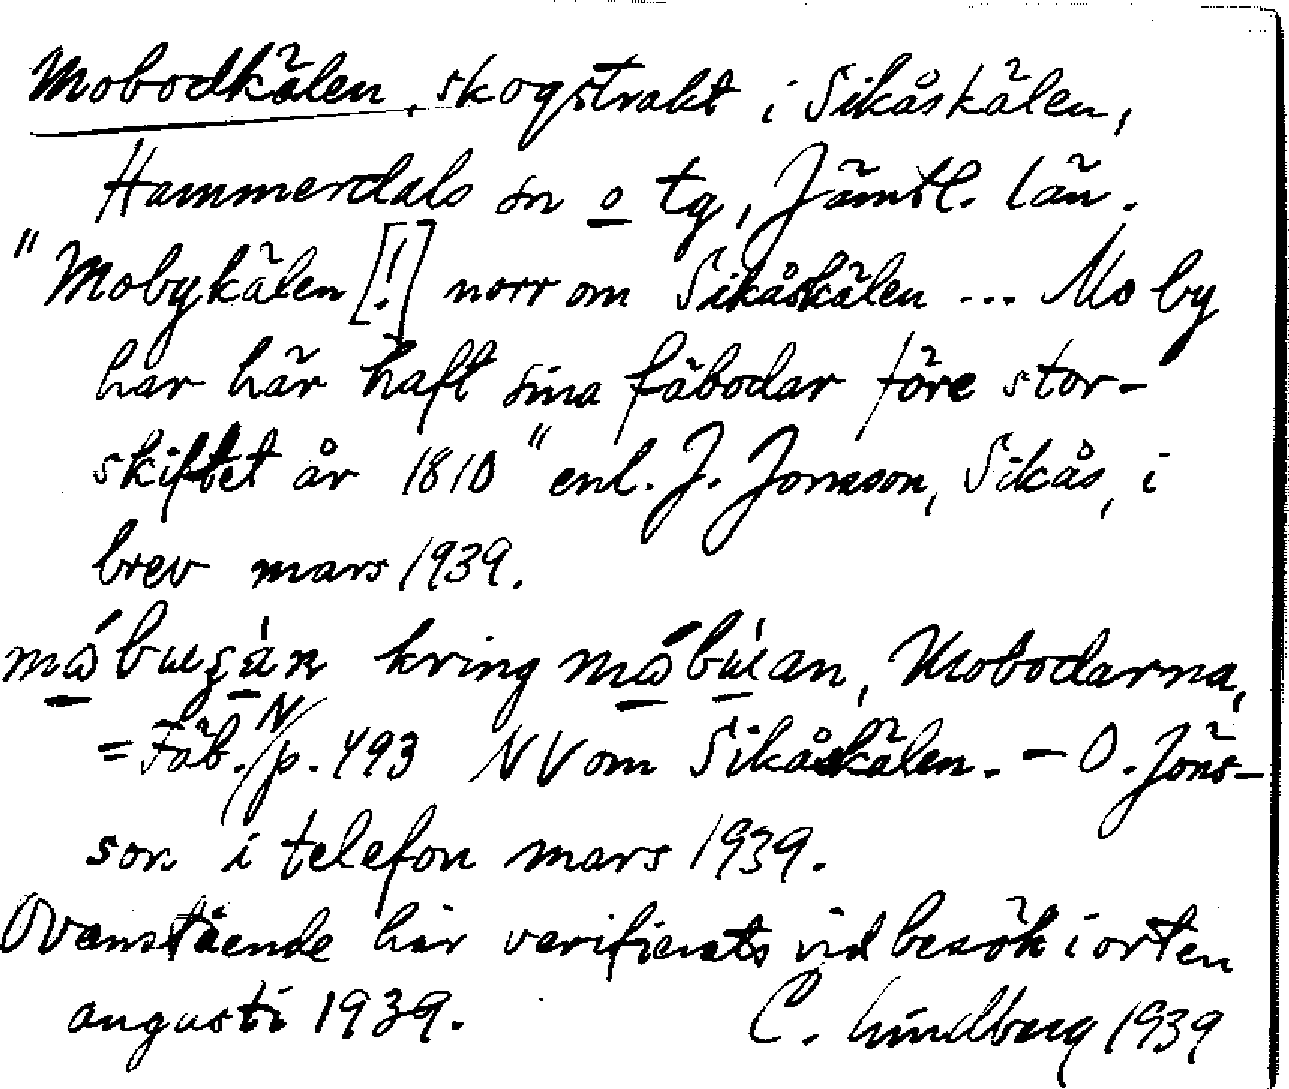 Mobodkälen, skogstrakt i Sikåskälen,
Hammerdals sn o tg, Jämtl. län.
"Mobykälen [!] norr om Sikåskälen ... Mo by
har här haft sina fäbodar före stor-
skiftet år 1810" enl. J. Jonsson, Sikås, i
brev mars 1939.
kring Mobodarna,
= Fäb. N/p. 493 NV om Sikåskälen. - O. Jöns-
son i telefon mars 1939.
Ovanstående har verifierats vid besök i orten
augusti 1939. C. Lindberg 1939